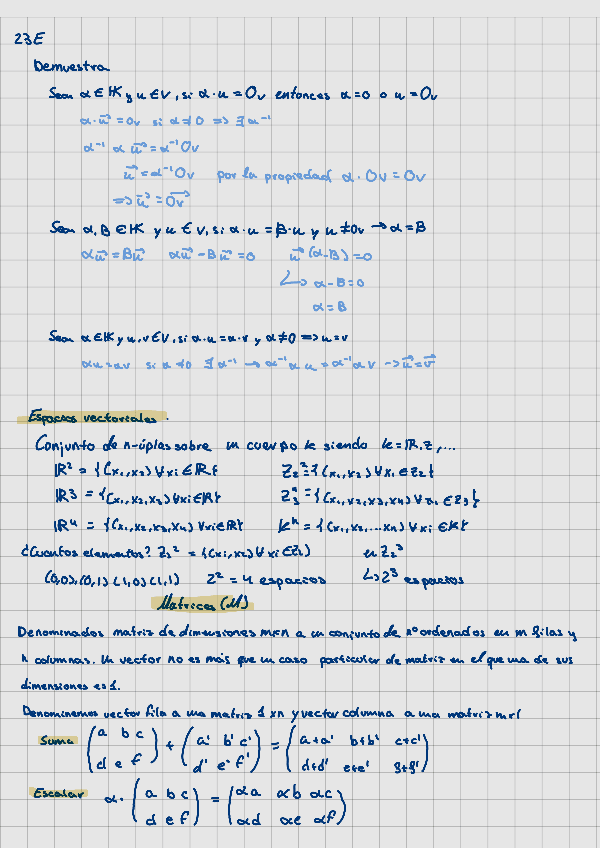 23E
Demuestra
Sean α ∈ K y u ∈ V, si α·u = Ov entonces α=0 o u = Ov
α·u⃗ = Ov si α≠0 => ∃ α⁻¹
α⁻¹ α u⃗ = α⁻¹ Ov
u⃗ = α⁻¹ Ov por la propiedad α·Ov = Ov
=> u⃗ = O⃗v
Sean α, B ∈ K y u ∈ V, si α·u = β·u y u ≠ Ov → α = B
αu⃗ = Bu⃗ αu⃗ - Bu⃗ = 0 u⃗ (α-B) = 0
↳ α-B = 0
α = B
Sean α ∈ K y u, v ∈ V, si α·u = α·v y α≠0 => u = v
αu = αv si α≠0 ∃ α⁻¹ → α⁻¹ α u = α⁻¹ α v -> u⃗ = v⃗
Espacios vectoriales.
Conjunto de n-úplas sobre un cuerpo k siendo k = IR, Z, ...
IR² = {(x₁, x₂) ∀ xi ∈ IR} Z₂² = {(x₁, x₂) ∀ xi ∈ Z₂}
IR³ = {(x₁, x₂, x₃) ∀ xi ∈ IR} Z₃⁴ = {(x₁, x₂, x₃, x₄) ∀ xi ∈ Z₃}
IR⁴ = {(x₁, x₂, x₃, x₄) ∀ xi ∈ IR} kⁿ = {(x₁, x₂, ... xn) ∀ xi ∈ K}
¿Cuantos elementos? Z₂² = {(x₁, x₂) ∀ xi ∈ Z₂} en Z₂³
(0,0), (0,1) (1,0) (1,1) 2² = 4 espacios ↳ 2³ espacios
Matrices (M)
Denominados matriz de dimensiones m×n a un conjunto de nº ordenados en m filas y
n columnas. Un vector no es más que un caso particular de matriz en el que una de sus
dimensiones es 1.
Denominemos vector fila a una matriz 1 xn y vector columna a una matriz mx1
Suma (a b c / d e f) + (a' b' c' / d' e' f') = (a+a' b+b' c+c' / d+d' e+e' f+f')
Escalar α · (a b c / d e f) = (αa αb αc / αd αe αf)